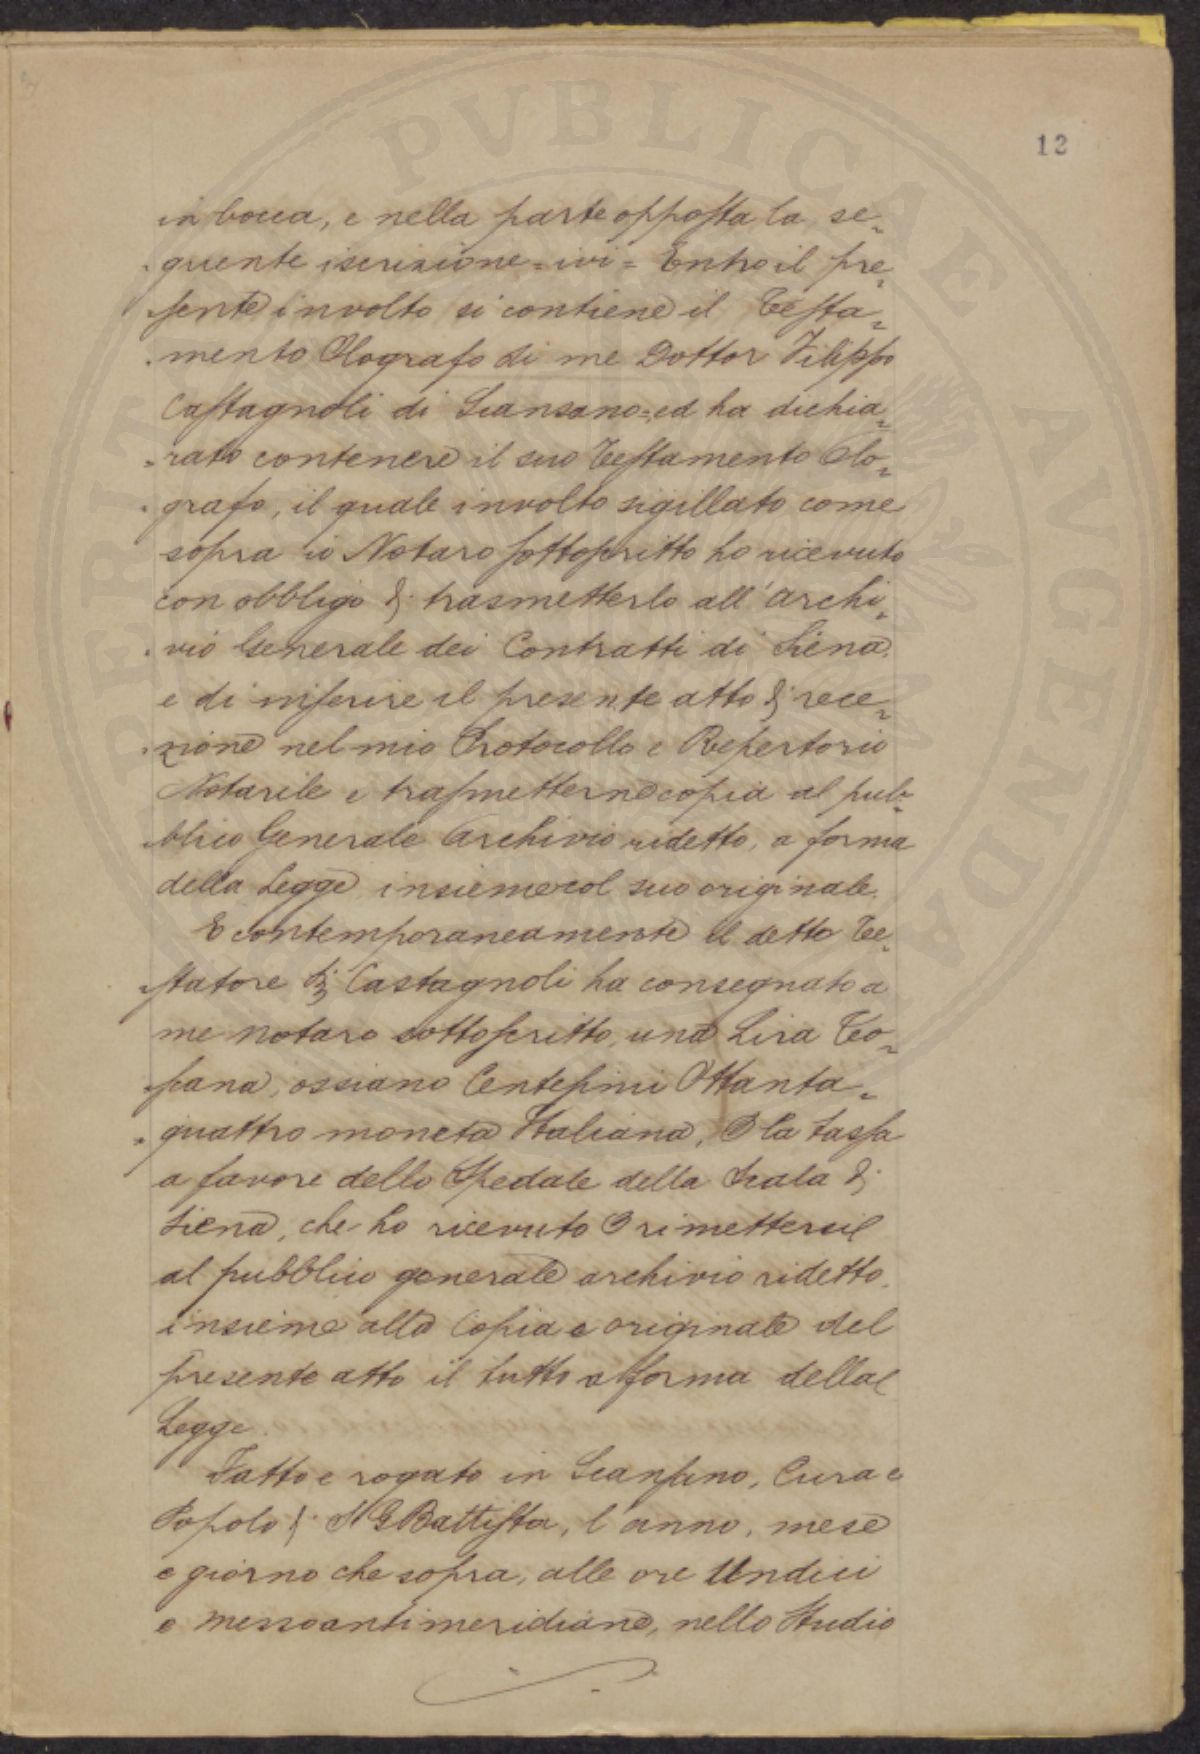 12
in bocca, e nella parte opposta la se-
quente iscrizione = ivi = Entro il pre-
sente involto si contiene il Testa-
mento Olografo di me Dottor Filippo
Castagnoli di Scansano =, ed ha dichia-
rato contenere il suo Testamento Olo-
grafo, il quale involto sigillato come
sopra io Notaro sottoscritto ho ricevuto
con obbligo di trasmetterlo all'archi-
vio Generale dei Contratti di Siena,
e di inserire il presente atto di rece-
zione nel mio Protocollo e Repertorio
Notarile e trasmetterne copia al pub-
blico Generale Archivio ridetto, a forma
della Legge insieme col suo originale.
E contemporaneamente il detto Te-
statore Castagnoli ha consegnato a
me notaro sottoscritto, una Lira To-
scana, ossiano Centesimi Ottanta-
quattro moneta Italiana, la tassa
a favore dello Spedale della Scala di
Siena, che ho ricevuto rimettersi
al pubblico generale archivio ridetto,
insieme alla Copia e originale del
presente atto il tutto a forma della
Legge.
Fatto e rogato in Scansano, Cura e
Popolo di S. G. Battista, l'anno, mese
e giorno che sopra, alle ore Undici
e mezzo antimeridiane, nello Studio
PERITA PVBLICAE AVGENDA